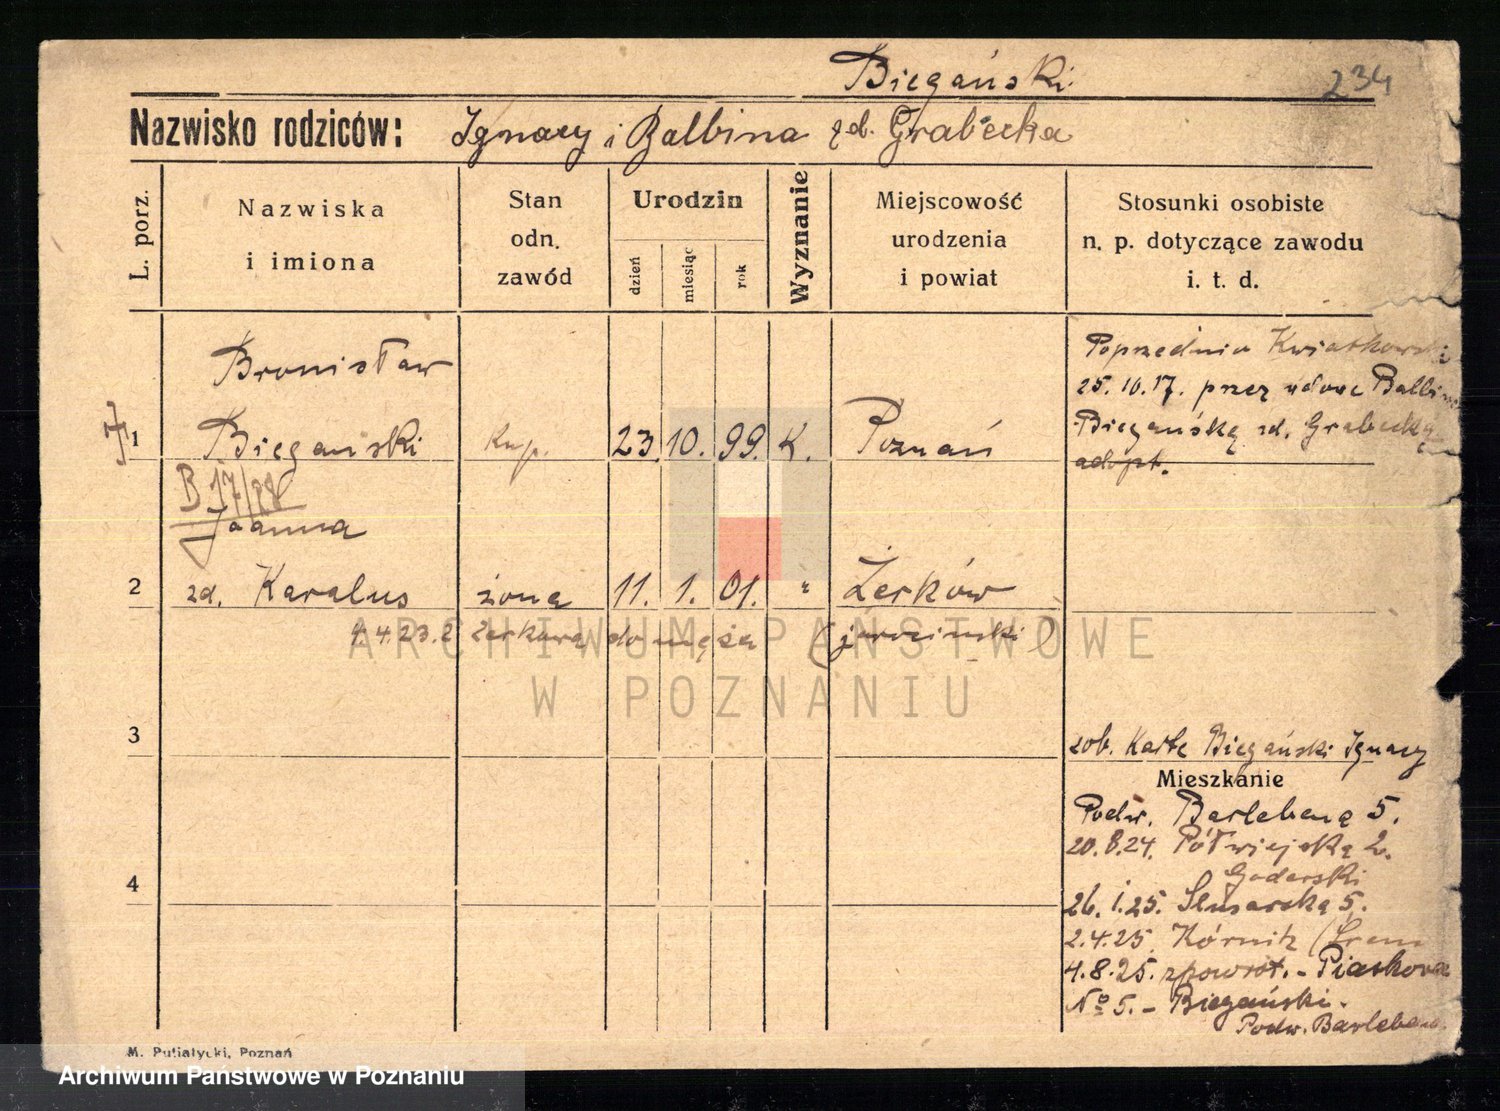 Biegański
234
Nazwisko rodziców: Ignacy i Balbina zd. Grabecka
L. porz.
Nazwiska
i imiona
Stan
odn.
zawód
Urodzin
dzień
miesiąc
rok
Wyznanie
Miejscowość
urodzenia
i powiat
Stosunki osobiste
n. p. dotyczące zawodu
i. t. d.
Bronisław
1 Biegański kup. 23. 10. 99. K. Poznań
Poprzednio Kwiatkowski
25. 10. 17. przez wdowę Balbinę
Biegańską zd. Grabecką
adopt.
B 17/28
Joanna
2 zd. Karalus żona 11. 1. 01. " Żerków
4.4.23. z Żerkowa do męża (jarociński)
3
zob. Kartę Biegański Ignacy
Mieszkanie
Podw. Barlebena 5.
20.8.24. Półwiejska 2.
Gadarski
4
26.1.25. Ślusarska 5.
2.4.25. Kórnik (Śrem
4.8.25. zpowrot. - Piaskowa
No 5. - Biegański.
Podw. Barleben
M. Putiatycki, Poznań
ARCHIWUM PAŃSTWOWE
W POZNANIU
Archiwum Państwowe w Poznaniu